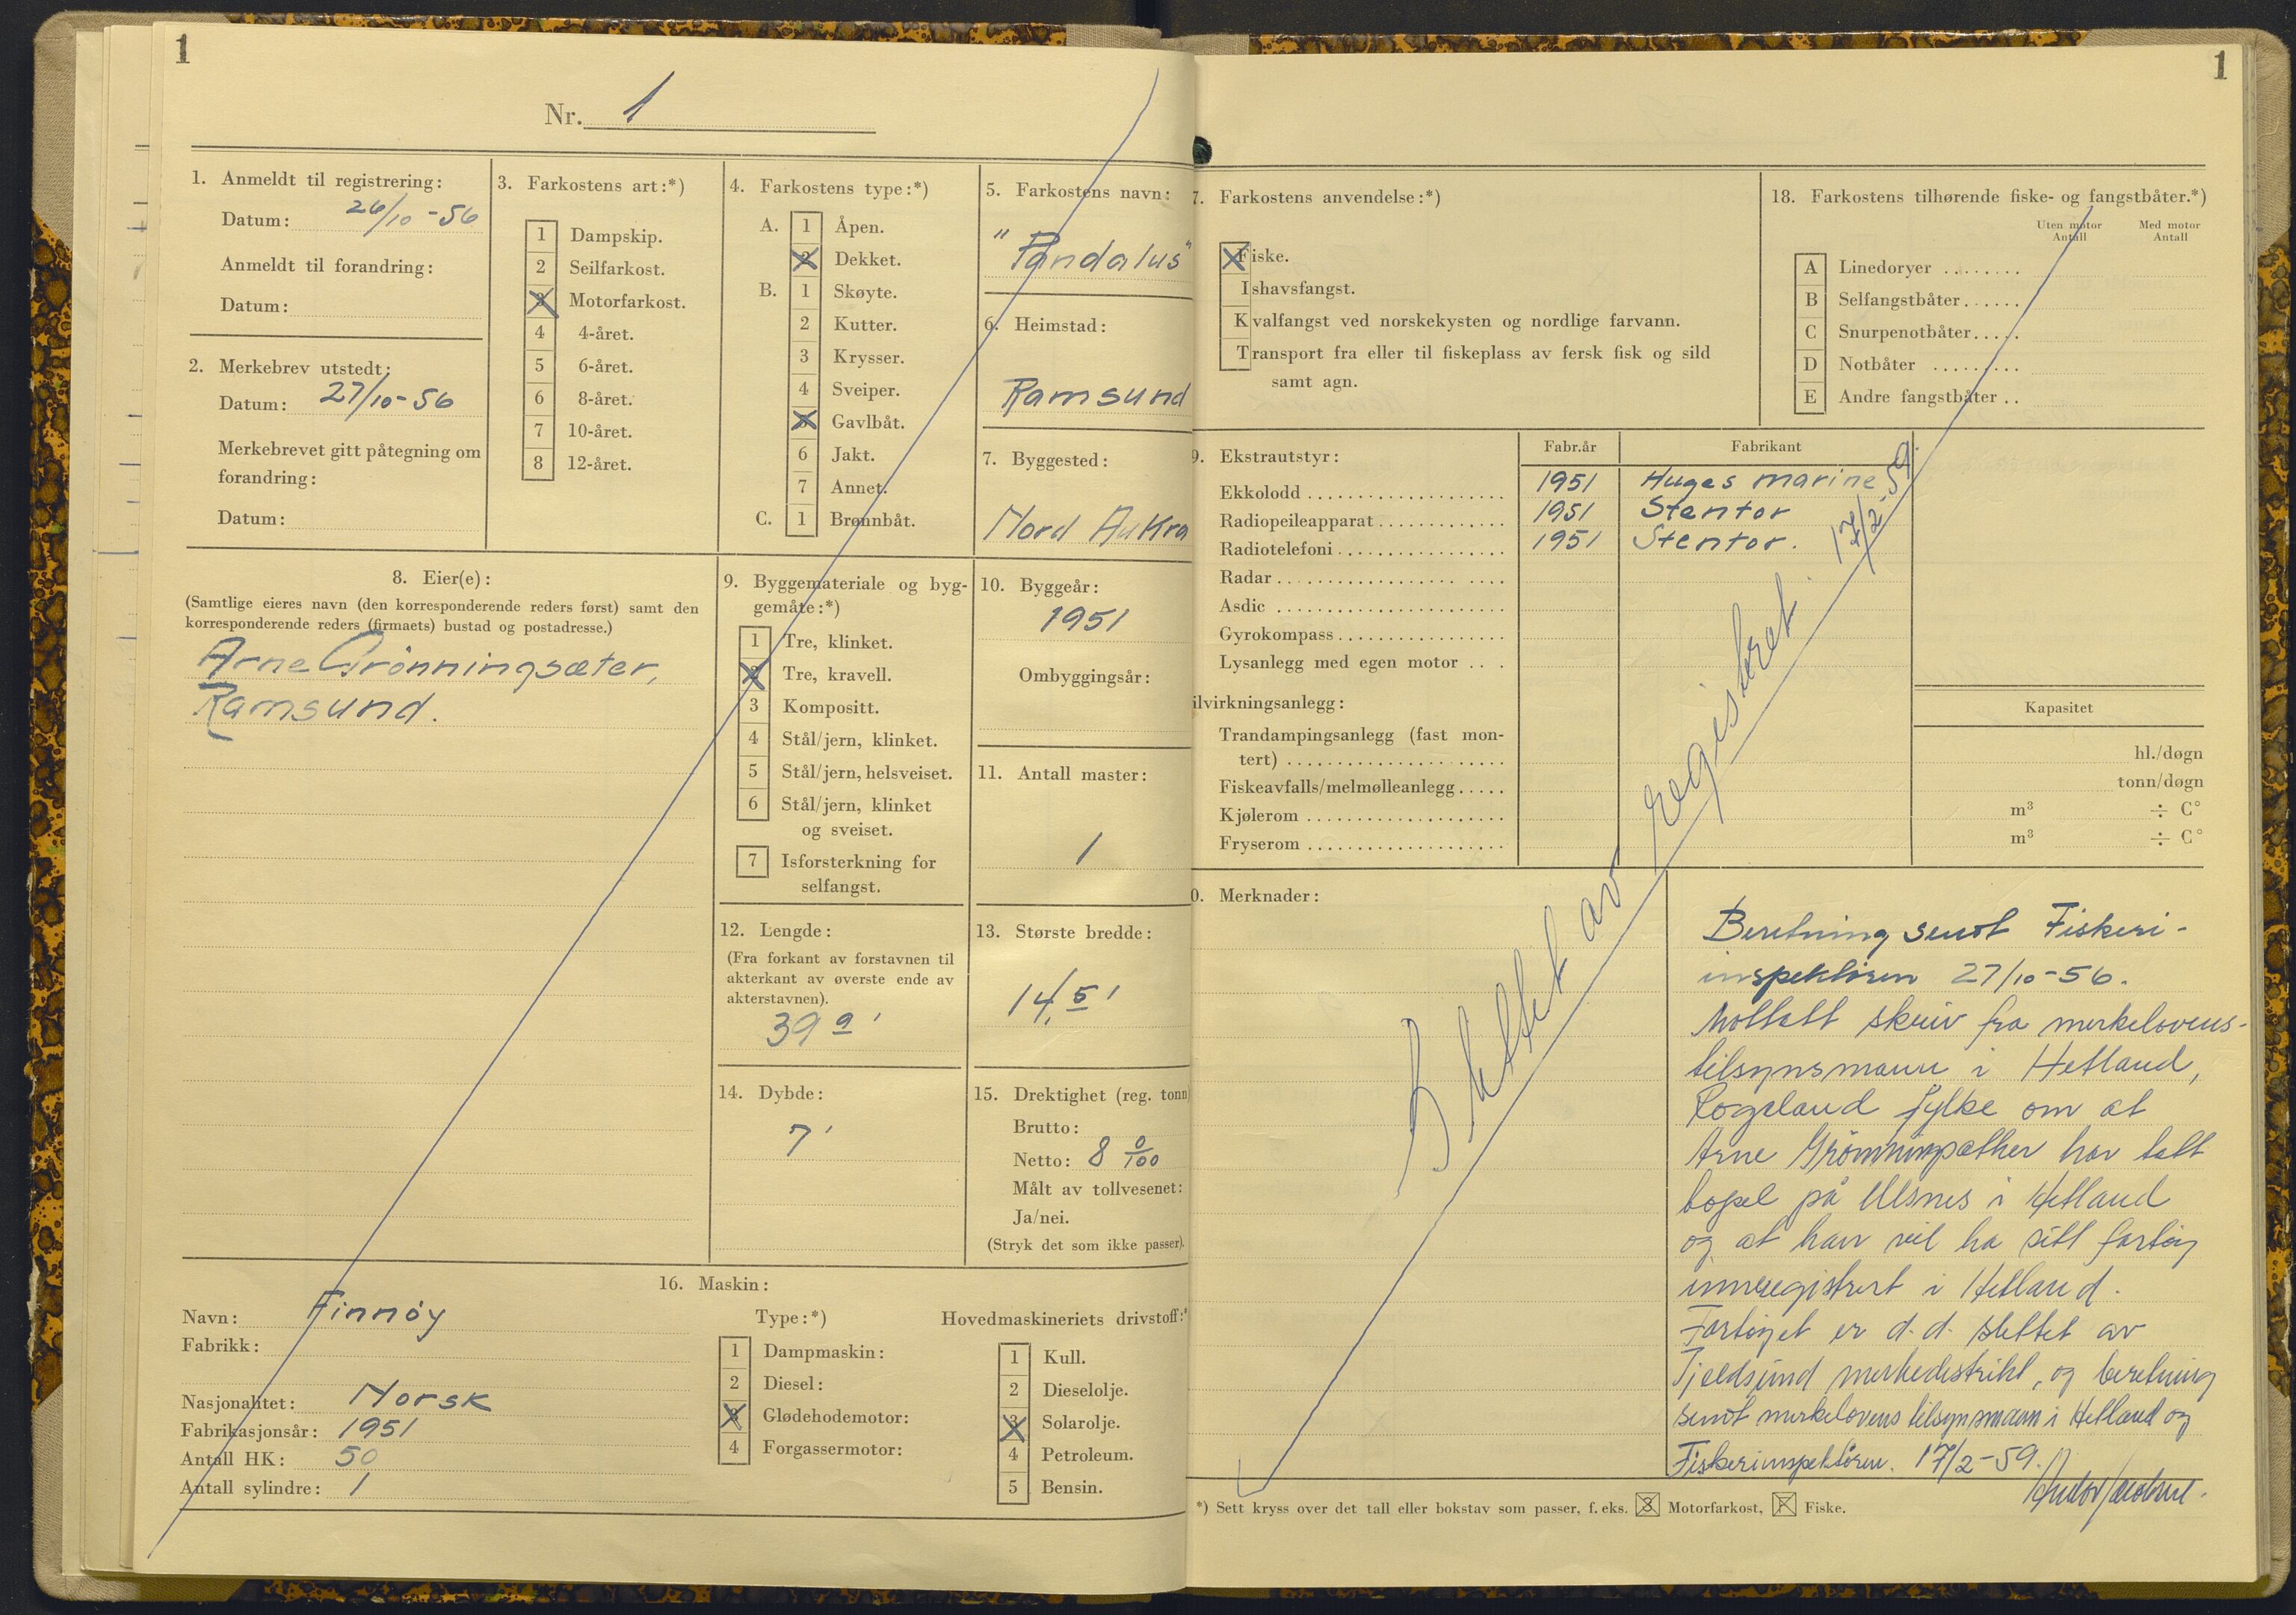 1
Nr. 1
1. Anmeldt til registrering:
Datum: 26/10-56
Anmeldt til forandring:
Datum:
2. Merkebrev utstedt:
Datum: 27/10-56
Merkebrevet gitt påtegning om
forandring:
Datum:
3. Farkostens art:*)
1 Dampskip.
2 Seilfarkost.
3 Motorfarkost.
4 4-året.
5 6-året.
6 8-året.
7 10-året.
8 12-året.
4. Farkostens type:*)
A. 1 Åpen.
2 Dekket.
B. 1 Skøyte.
2 Kutter.
3 Krysser.
4 Sveiper.
5 Gavlbåt.
6 Jakt.
7 Annet.
C. 1 Brønnbåt.
5. Farkostens navn:
"Pandalus"
6. Heimstad:
Ramsund
7. Byggested:
Nord Aukra
8. Eier(e):
(Samtlige eieres navn (den korresponderende reders først) samt den
korresponderende reders (firmaets) bustad og postadresse.)
Arne Grönningsæter,
Ramsund.
9. Byggemateriale og byg-
gemåte:*)
1 Tre, klinket.
2 Tre, kravell.
3 Kompositt.
4 Stål/jern, klinket.
5 Stål/jern, helsveiset.
6 Stål/jern, klinket
og sveiset.
7 Isforsterkning for
selfangst.
10. Byggeår:
1951
Ombyggingsår:
11. Antall master:
1
12. Lengde:
(Fra forkant av forstavnen til
akterkant av øverste ende av
akterstavnen).
39 9'
13. Største bredde:
14,5'
14. Dybde:
7'
15. Drektighet (reg. tonn
Brutto:
Netto: 8 0/100
Målt av tollvesenet:
Ja/nei.
(Stryk det som ikke passer).
16. Maskin:
Navn: Finnöy
Fabrikk:
Nasjonalitet: Norsk
Fabrikasjonsår: 1951
Antall HK: 50
Antall sylindre: 1
Type:*)
1 Dampmaskin:
2 Diesel:
3 Glødehodemotor:
4 Forgassermotor:
Hovedmaskineriets drivstoff:*
1 Kull.
2 Dieselolje.
3 Solarolje.
4 Petroleum.
5 Bensin.
1
7. Farkostens anvendelse:*)
Fiske.
Ishavsfangst.
Kvalfangst ved norskekysten og nordlige farvann.
Transport fra eller til fiskeplass av fersk fisk og sild
samt agn.
18. Farkostens tilhørende fiske- og fangstbåter.*)
Uten motor Antall
Med motor Antall
A Linedoryer
B Selfangstbåter
C Snurpenotbåter
D Notbåter
E Andre fangstbåter
9. Ekstrautstyr: Fabr.år Fabrikant
Ekkolodd 1951 Huges marine
Radiopeileapparat 1951 Stentor
Radiotelefoni 1951 Stentor.
Radar
Asdic
Gyrokompass
Lysanlegg med egen motor
ilvirkningsanlegg: Kapasitet
Trandampingsanlegg (fast mon-
tert) hl./døgn
Fiskeavfalls/melmølleanlegg tonn/døgn
Kjølerom m³ ÷ C°
Fryserom m³ ÷ C°
Slettet av registeret. 17/2-59.
0. Merknader:
Beretning sendt Fiskeri-
inspektören 27/10-56.
Mottatt skriv fra merkelovens-
tilsynsmann i Hetland,
Rogaland fylke om at
Arne Grönningsæther har tatt
bopel på Ulsnes i Hetland
og at han vil ha sitt fartöy
innregistrert i Hetland.
Fartöyet er d.d. slettet av
Tjeldsund merkedistrikt, og beretning
sendt merkelovens tilsynsmann i Hetland og
Fiskeriinspektören. 17/2-59.
*) Sett kryss over det tall eller bokstav som passer, f. eks. 3 Motorfarkost, F Fiske.